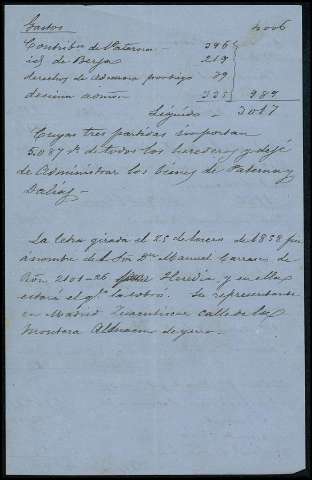 Gastos 4006
Contribn de Paterna — 346
id de Berja — 219
derechos de Admon 89
decima 335 989
Líquido — 3017
Cuyas tres partidas importan
5.087 rs de todos los herederos y dejé
de Administrar los bienes de Paterna y
Dalías —
La letra girada el 25 de Enero de 1858 fue
a nombre del Sor Dn Manuel Carrasco de
Rôn. 2101-26 Heredia y en ella
estará el qe la cobró. Su representante
en Madrid calle de la
Montera Almacen de